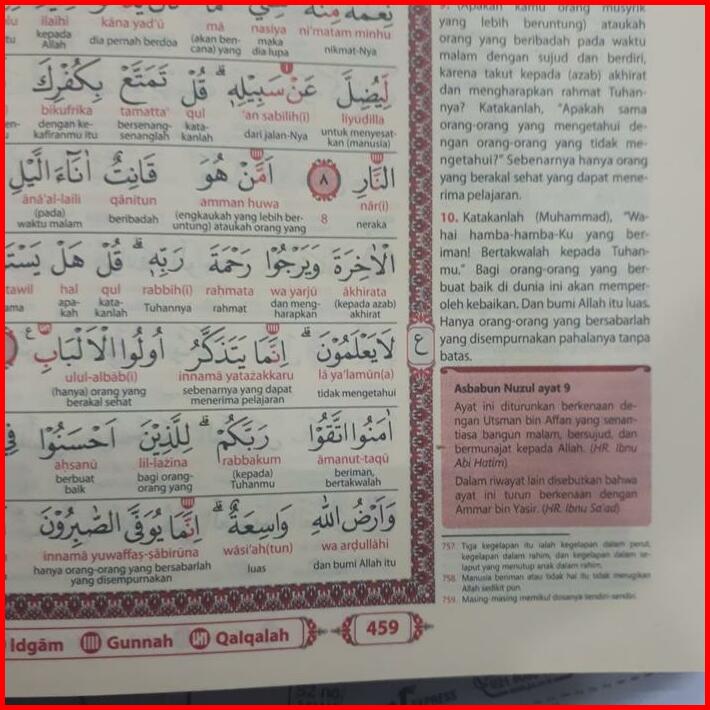 ilaihi kāna yad'ū mā nasiya ni'matam minhu
kepada Allah dia pernah berdoa (akan ben-cana) yang maka dia lupa nikmat-Nya
لِّيُضِلَّ عَنْ سَبِيْلِهٖ ۗ قُلْ تَمَتَّعْ بِكُفْرِكَ
bikufrika tamatta' qul 'an sabilih(i) liyuḍilla
dengan ke-kafiranmu itu bersenang-senanglah kata-kanlah dari jalan-Nya untuk menyesat-kan (manusia)
النَّارِ ٨ اَمَّنْ هُوَ قَانِتٌ اٰنَاۤءَ الَّيْلِ
ānā'al-laili qānitun amman huwa 8 nār(i)
(pada) waktu malam beribadah (engkaukah yang lebih ber-untung) ataukah orang yang neraka
الْاٰخِرَةَ وَيَرْجُوْا رَحْمَةَ رَبِّهٖ ۗ قُلْ هَلْ
hal qul rabbih(i) raḥmata wa yarjū ākhirata
apa-kah kata-kanlah Tuhannya rahmat dan meng-harapkan (kepada azab) akhirat
لَا يَعْلَمُوْنَ ۗ اِنَّمَا يَتَذَكَّرُ اُولُوا الْاَلْبَابِ ع
ulul-albāb(i) innamā yatażakkaru lā ya'lamūn(a)
(hanya) orang yang berakal sehat sebenarnya yang dapat menerima pelajaran tidak mengetahui
اٰمَنُوا اتَّقُوْا رَبَّكُمْ ۗ لِلَّذِيْنَ اَحْسَنُوْا فِيْ
aḥsanū lil-lażina rabbakum āmanut-taqū
berbuat baik bagi orang-orang yang (kepada) Tuhanmu beriman, bertakwalah
وَاَرْضُ اللّٰهِ وَاسِعَةٌ ۗ اِنَّمَا يُوَفَّى الصّٰبِرُوْنَ
innamā yuwaffaṣ-ṣābirūna wāsi'ah(tun) wa arḍullāhi
hanya orang-orang yang bersabarlah yang disempurnakan luas dan bumi Allah itu
ع
Idgām Gunnah Qalqalah 459
9. (Apakah kamu orang musyrik
yang lebih beruntung) ataukah
orang yang beribadah pada waktu
malam dengan sujud dan berdiri,
karena takut kepada (azab) akhirat
dan mengharapkan rahmat Tuhan-
nya? Katakanlah, "Apakah sama
orang-orang yang mengetahui de-
ngan orang-orang yang tidak me-
ngetahui?" Sebenarnya hanya orang
yang berakal sehat yang dapat mene-
rima pelajaran.
10. Katakanlah (Muhammad), "Wa-
hai hamba-hamba-Ku yang ber-
iman! Bertakwalah kepada Tuhan-
mu." Bagi orang-orang yang ber-
buat baik di dunia ini akan memper-
oleh kebaikan. Dan bumi Allah itu luas.
Hanya orang-orang yang bersabarlah
yang disempurnakan pahalanya tanpa
batas.
Asbabun Nuzul ayat 9
Ayat ini diturunkan berkenaan de-
ngan Utsman bin Affan yang senan-
tiasa bangun malam, bersujud, dan
bermunajat kepada Allah. (HR. Ibnu
Abi Hatim)
Dalam riwayat lain disebutkan bahwa
ayat ini turun berkenaan dengan
Ammar bin Yasir. (HR. Ibnu Sa'ad)
757. Tiga kegelapan itu ialah kegelapan dalam perut,
kegelapan dalam rahim, dan kegelapan dalam se-
laput yang menutup anak dalam rahim.
758. Manusia beriman atau tidak hal itu tidak merugikan
Allah sedikit pun.
759. Masing-masing memikul dosanya sendiri-sendiri.
EXPRESS